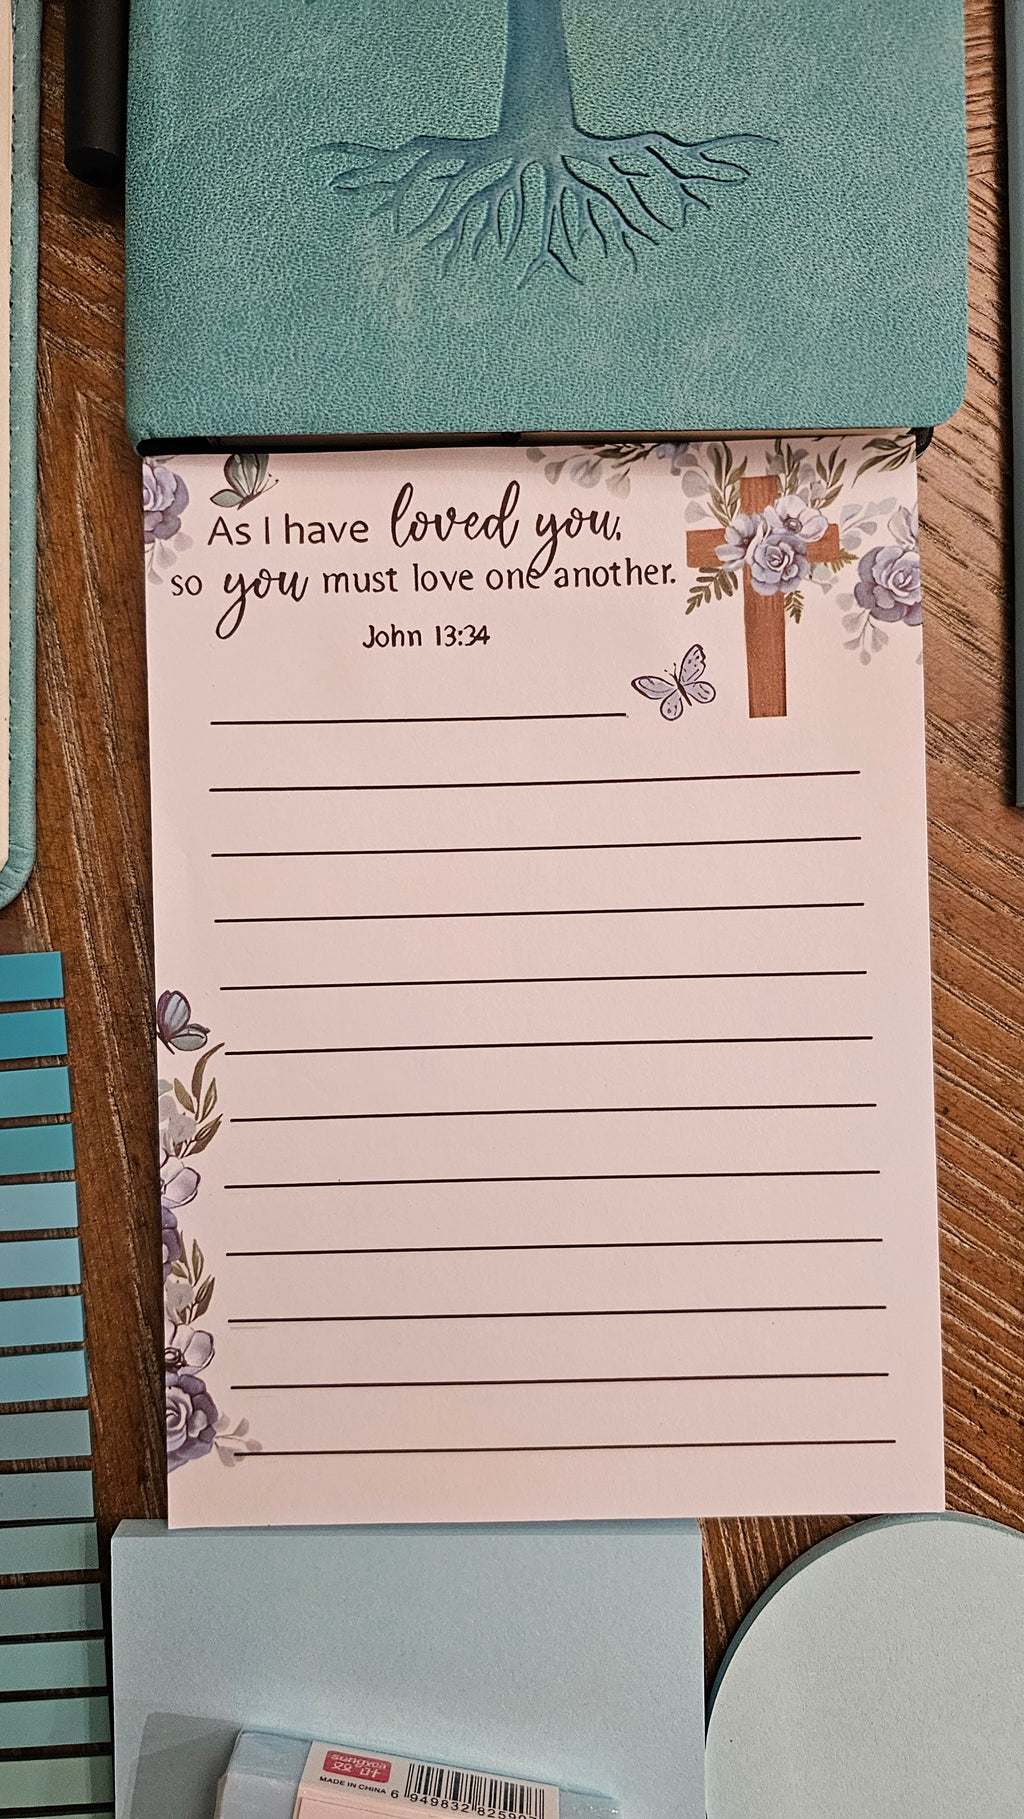 As I have loved you,
so you must love one another.
John 13:34
sungvoa
双叶
MADE IN CHINA
6 949832 82590